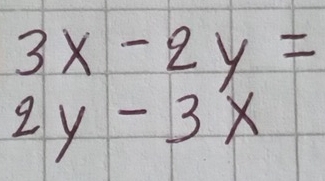 3x - 2y =
2y - 3x